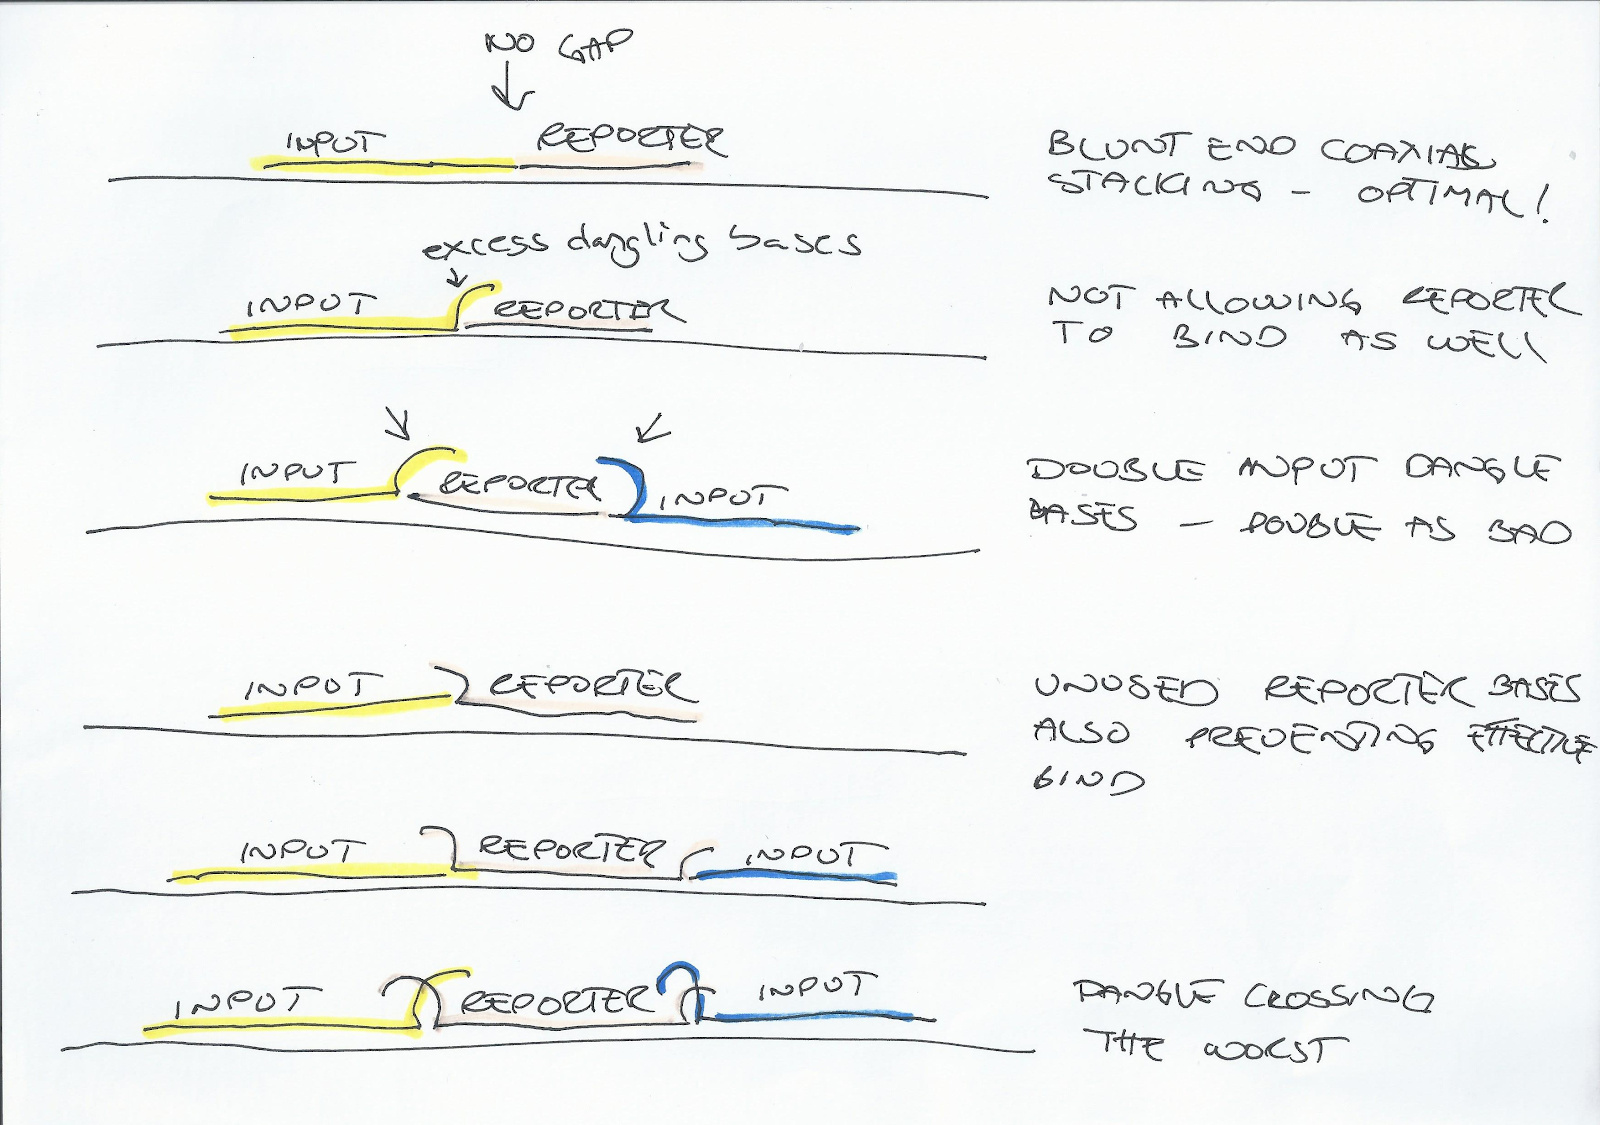 NO GAP
INPUT REPORTER
BLUNT END COAXIAL
STACKING - OPTIMAL!
excess dangling bases
INPUT REPORTER
NOT ALLOWING REPORTER
TO BIND AS WELL
INPUT REPORTER INPUT
DOUBLE INPUT DANGLE
BASES - DOUBLE AS BAD
INPUT REPORTER
UNUSED REPORTER BASES
ALSO PREVENTING EFFECTIVE
BIND
INPUT REPORTER INPUT
INPUT REPORTER INPUT
DANGLE CROSSING
THE WORST